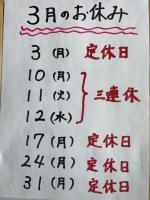 3月のお休み
3(月) 定休日
10(月)
11(火) 三連休
12(水)
17(月) 定休日
24(月) 定休日
31(月) 定休日